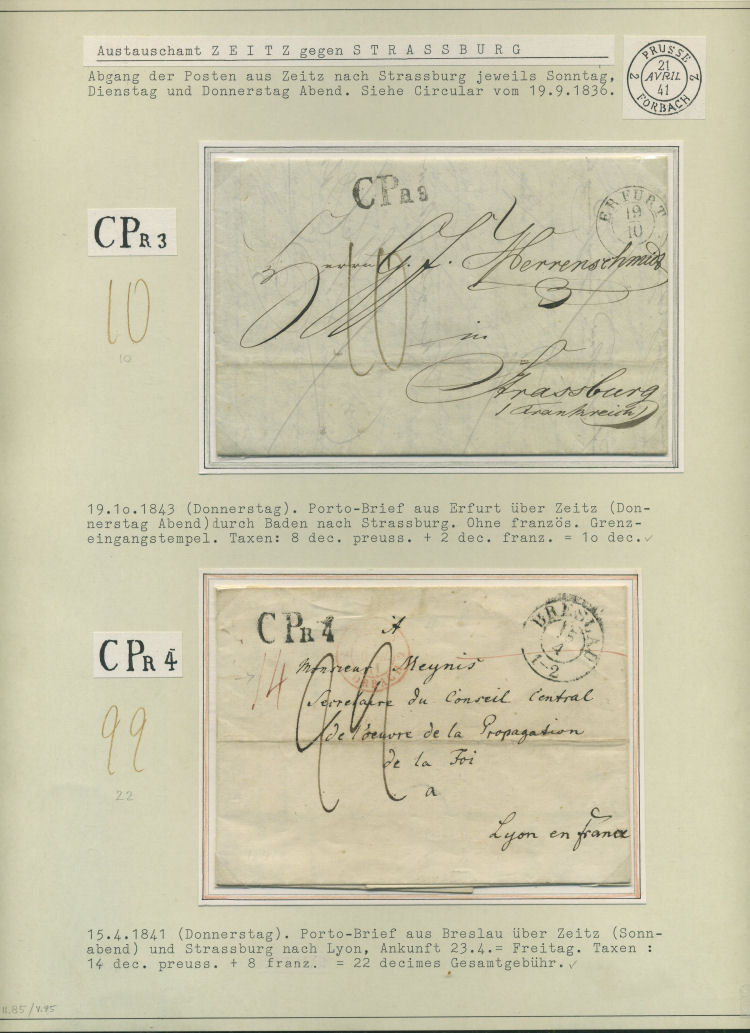 Austauschamt Z E I T Z gegen S T R A S S B U R G
Abgang der Posten aus Zeitz nach Strassburg jeweils Sonntag,
Dienstag und Donnerstag Abend. Siehe Circular vom 19.9.1836.
PRUSSE
21
AVRIL
41
2 FORBACH 2
CPR3
10
10
CPR3
ERFURT
19
10
Herrn C. F. Herrenschmidt
10
in
Strassburg
(Frankreich)
19.1o.1843 (Donnerstag). Porto-Brief aus Erfurt über Zeitz (Don-
nerstag Abend)durch Baden nach Strassburg. Ohne französ. Grenz-
eingangstempel. Taxen: 8 dec. preuss. + 2 dec. franz. = 1o dec.✓
CPR4
22
22
CPR4
BRESLAU
15
4
1-2
A
14
Monsieur Meynis
Secretaire du Conseil Central
de l'oeuvre de la Propagation
de la Foi
a
Lyon en france
15.4.1841 (Donnerstag). Porto-Brief aus Breslau über Zeitz (Sonn-
abend) und Strassburg nach Lyon, Ankunft 23.4.= Freitag. Taxen :
14 dec. preuss. + 8 franz. = 22 decimes Gesamtgebühr.✓